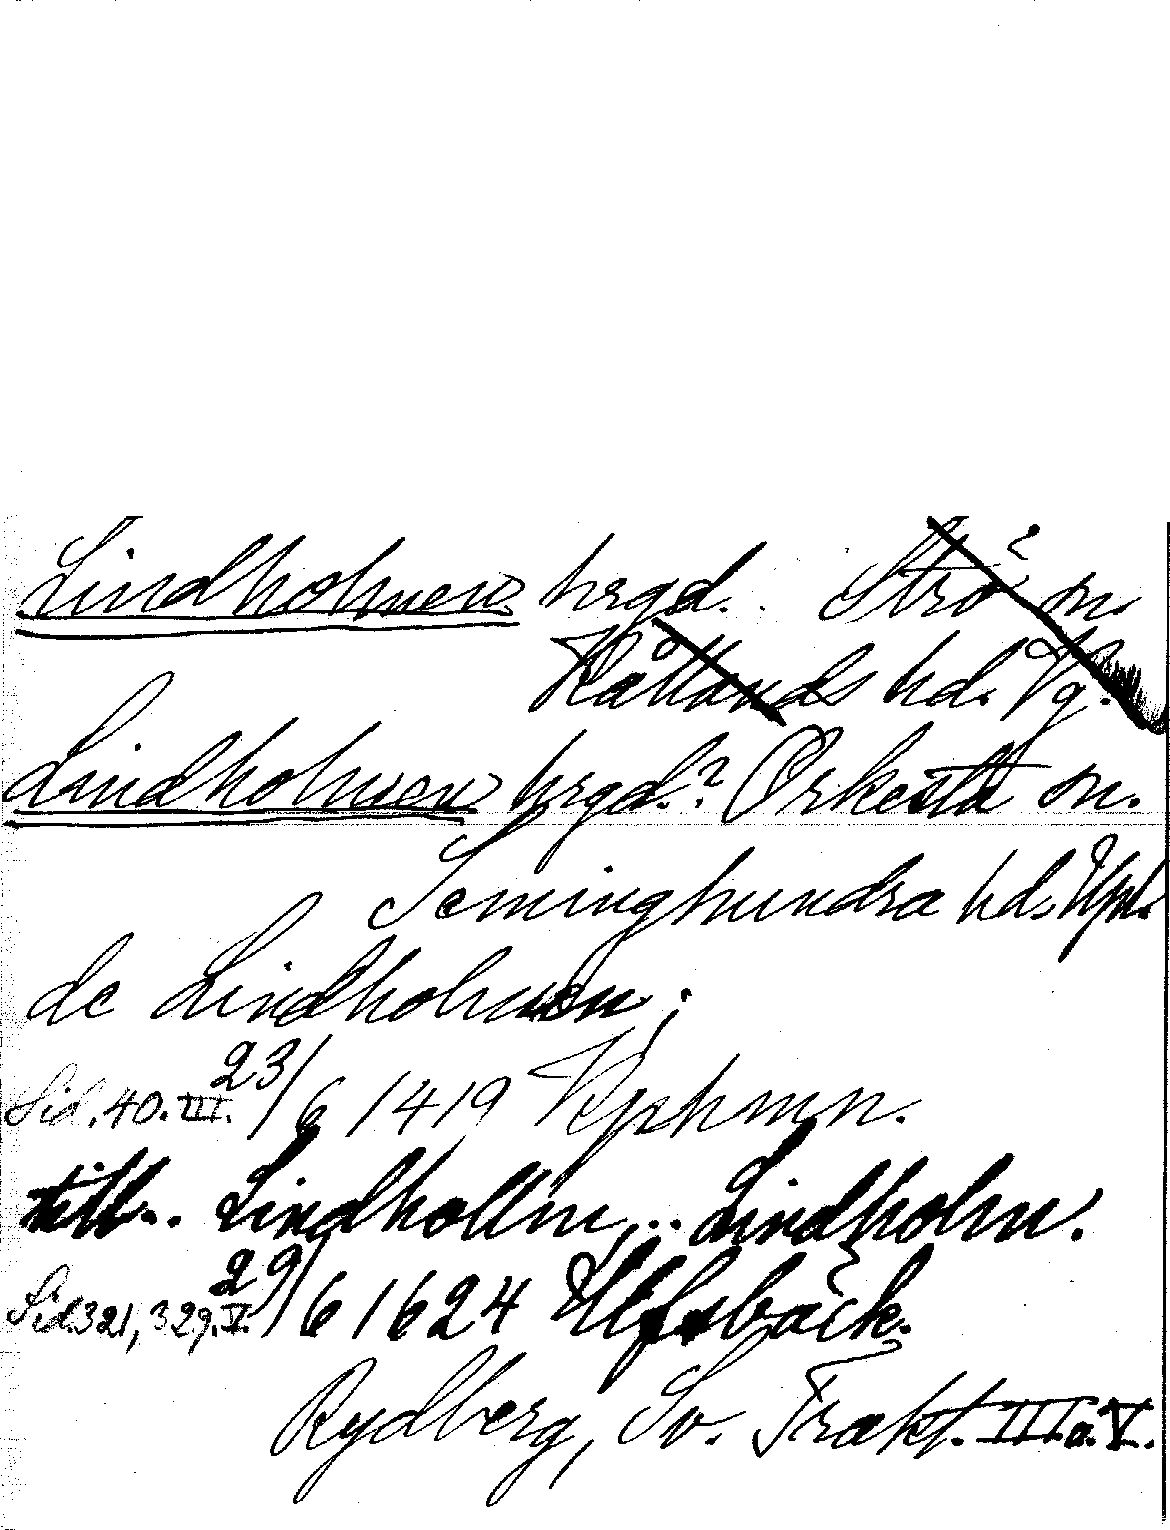 Lindholmen hrgd. Strö? sn.
Kållands hd. Vg.
Lindholmen hrgd.? Orkesta sn.
Seminghundra hd. Upl.
de Lindholmen;
Sid. 40. III. 23/6 1419 Kphmn.
till.. Lindhollm,.. Lindholm.
Sid. 321, 329. V. 29/6 1624 Ulfsbäck.
Rydberg, Sv. Trakt. III o. V.